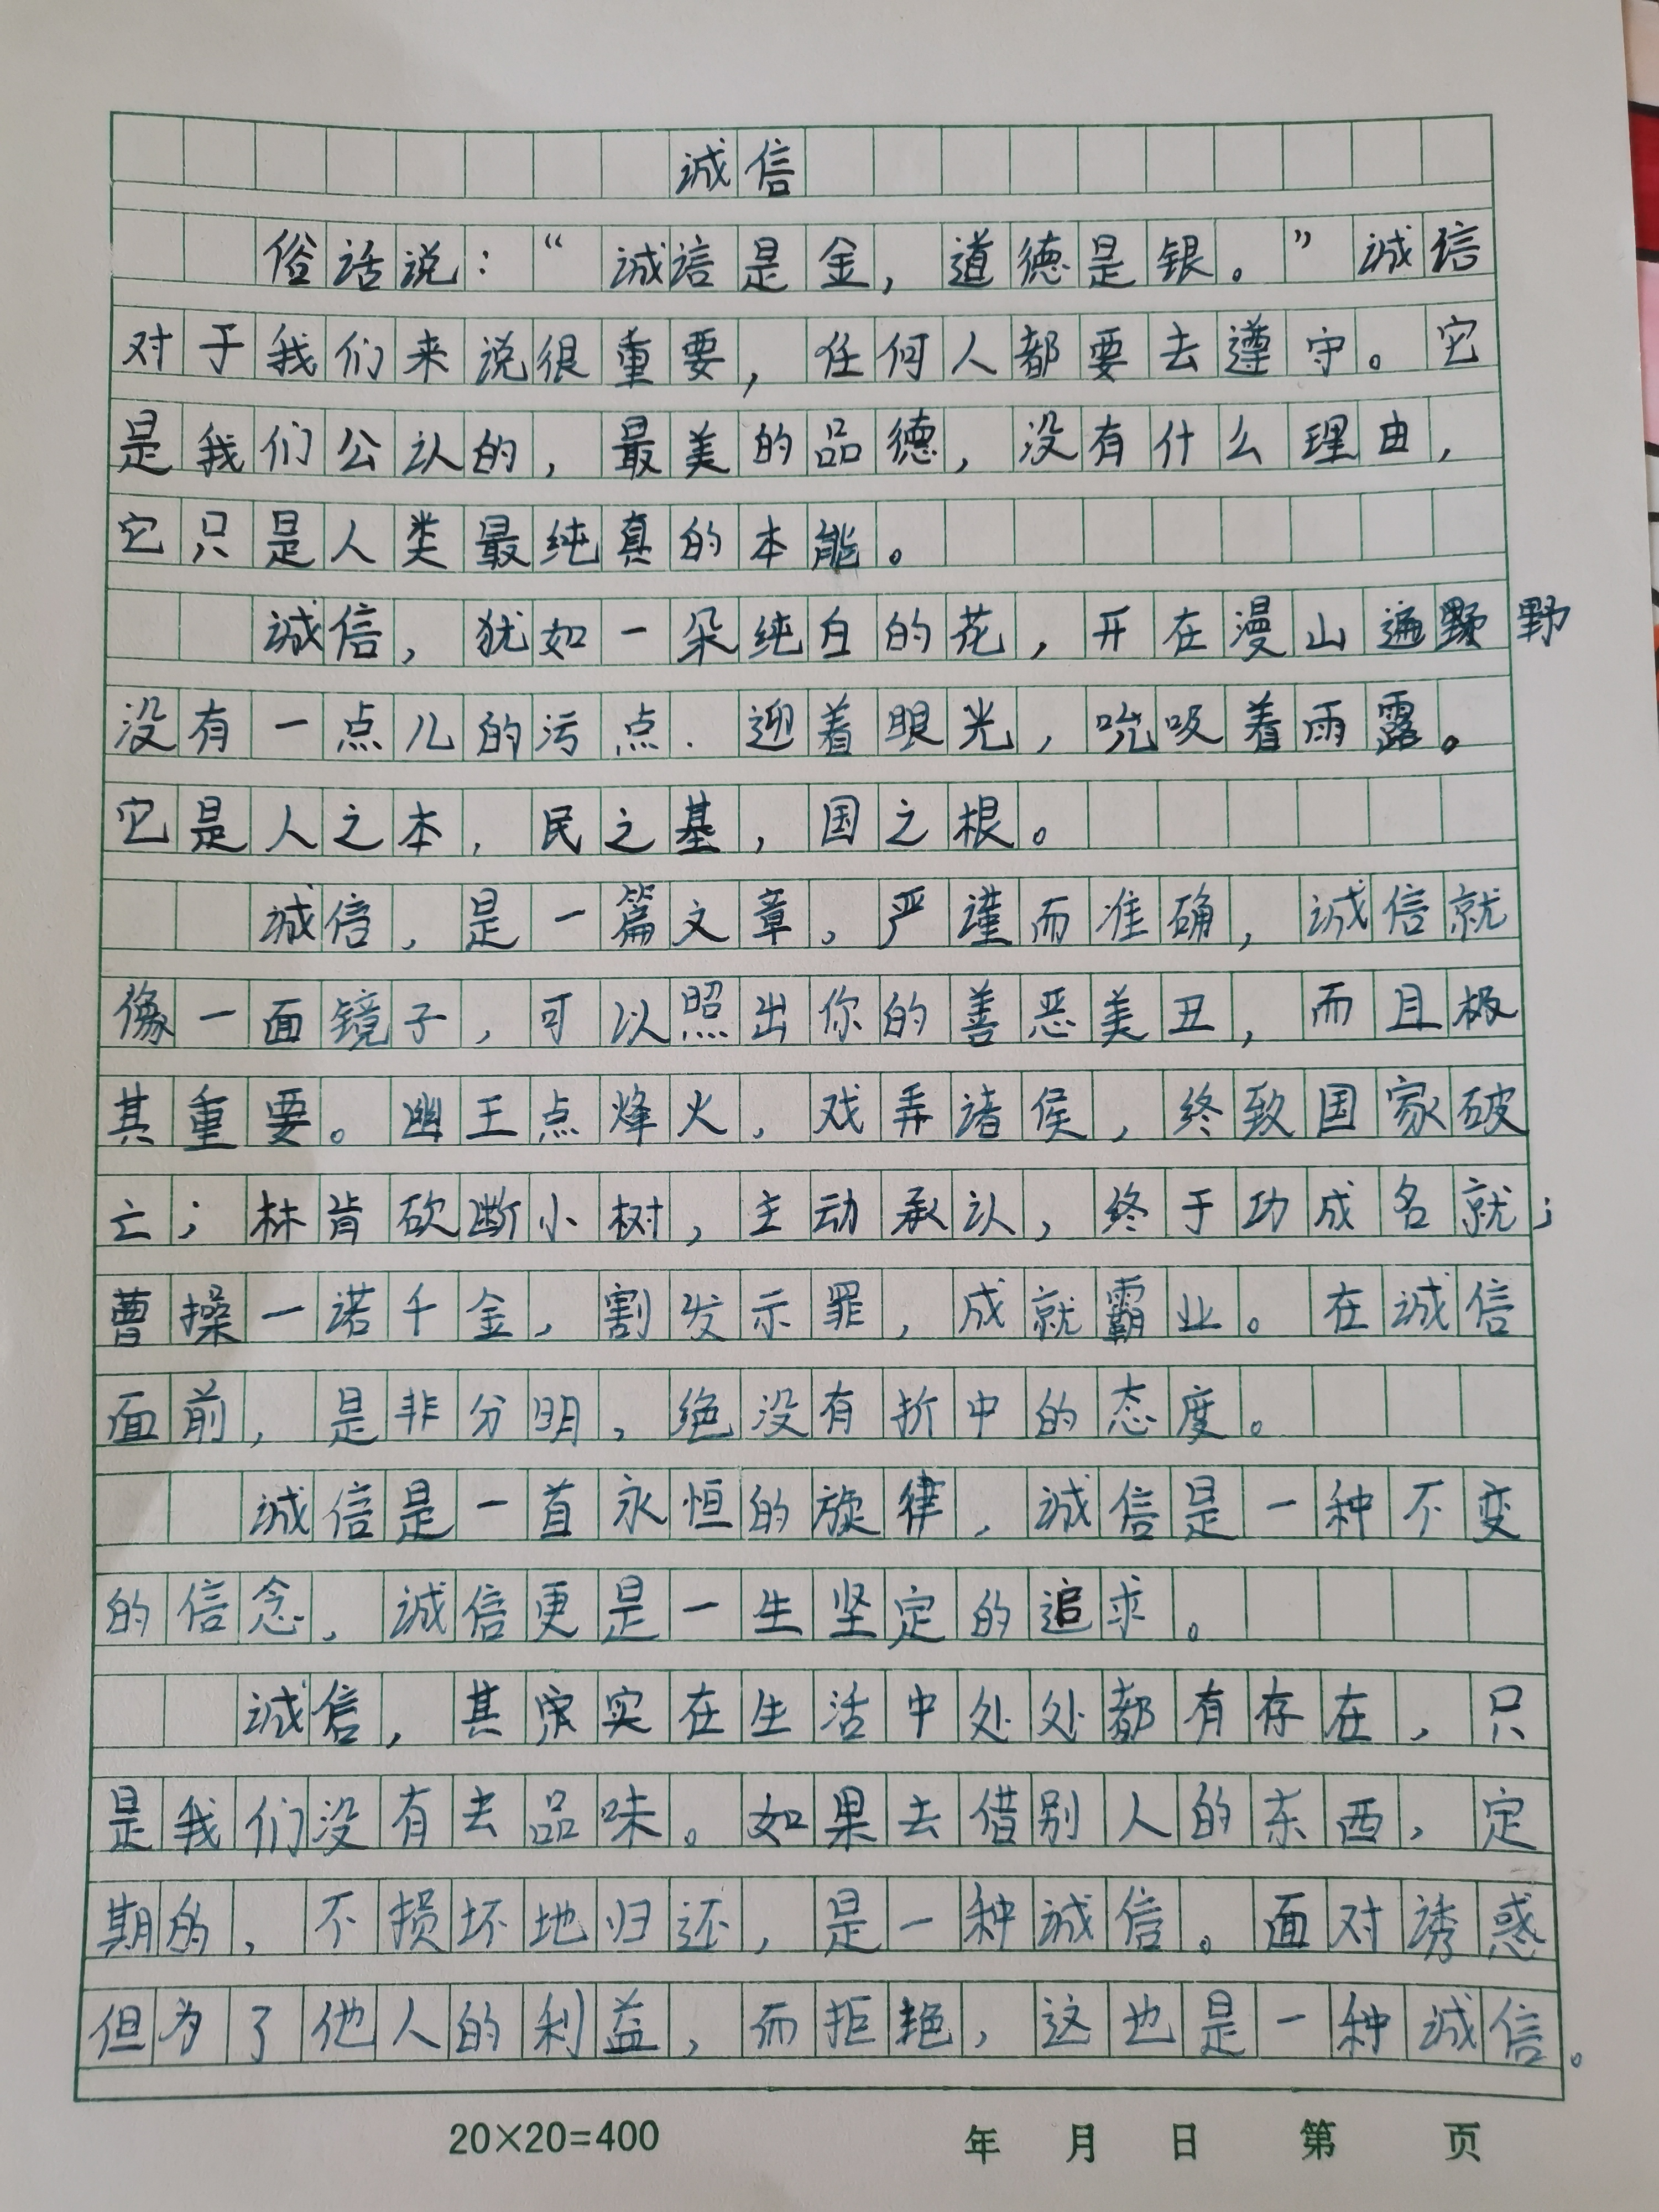 诚信
俗话说：“诚信是金，道德是银。”诚信
对于我们来说很重要，任何人都要去遵守。它
是我们公认的，最美的品德，没有什么理由，
它只是人类最纯真的本能。
诚信，犹如一朵纯白的花，开在漫山遍野
没有一点儿的污点．迎着眼光，吮吸着雨露。
它是人之本，民之基，国之根。
诚信，是一篇文章，严谨而准确，诚信就
像一面镜子，可以照出你的善恶美丑，而且极
其重要。幽王点烽火，戏弄诸侯，终致国家破
亡；林肯砍断小树，主动承认，终于功成名就；
曹操一诺千金，割发示罪，成就霸业。在诚信
面前，是非分明，绝没有折中的态度。
诚信是一首永恒的旋律，诚信是一种不变
的信念，诚信更是一生坚定的追求。
诚信，其实在生活中处处都有存在，只
是我们没有去品味。如果去借别人的东西，定
期的，不损坏地归还，是一种诚信。面对诱惑
但为了他人的利益，而拒绝，这也是一种诚信。
20×20=400 年 月 日 第 页